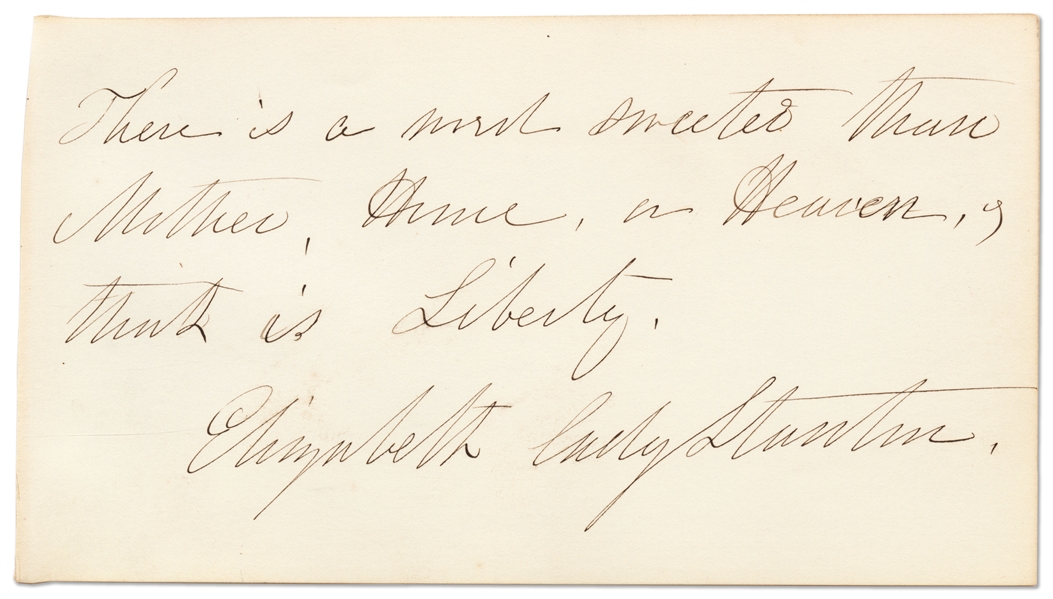 There is a word sweeter than
Mother, Home, or Heaven,
think is Liberty.
Elizabeth Cady Stanton.